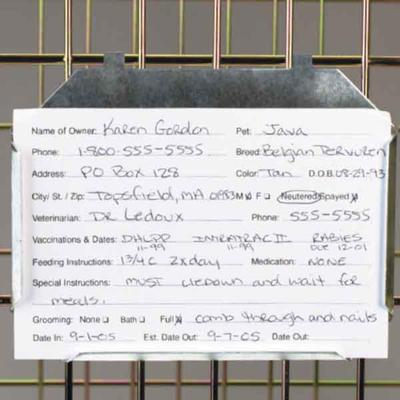 Name of Owner: Karen Gordon Pet: Java
Phone: 1-800-555-5555 Breed: Belgian Tervuren
Address: PO Box 128 Color: Tan D.O.B. 08-29-93
City/ St. / Zip: Topsfield, MA 01983 M F Neutered Spayed
Veterinarian: DR Ledoux Phone: 555-5555
Vaccinations & Dates: DHLPP 11-99 INTRATRAC II 11-99 RABIES DUE 12-01
Feeding Instructions: 1 3/4 C 2x day Medication: NONE
Special Instructions: MUST lie down and wait for
meals.
Grooming: None Bath Full comb through and nails
Date In: 9-1-05 Est. Date Out: 9-7-05 Date Out: